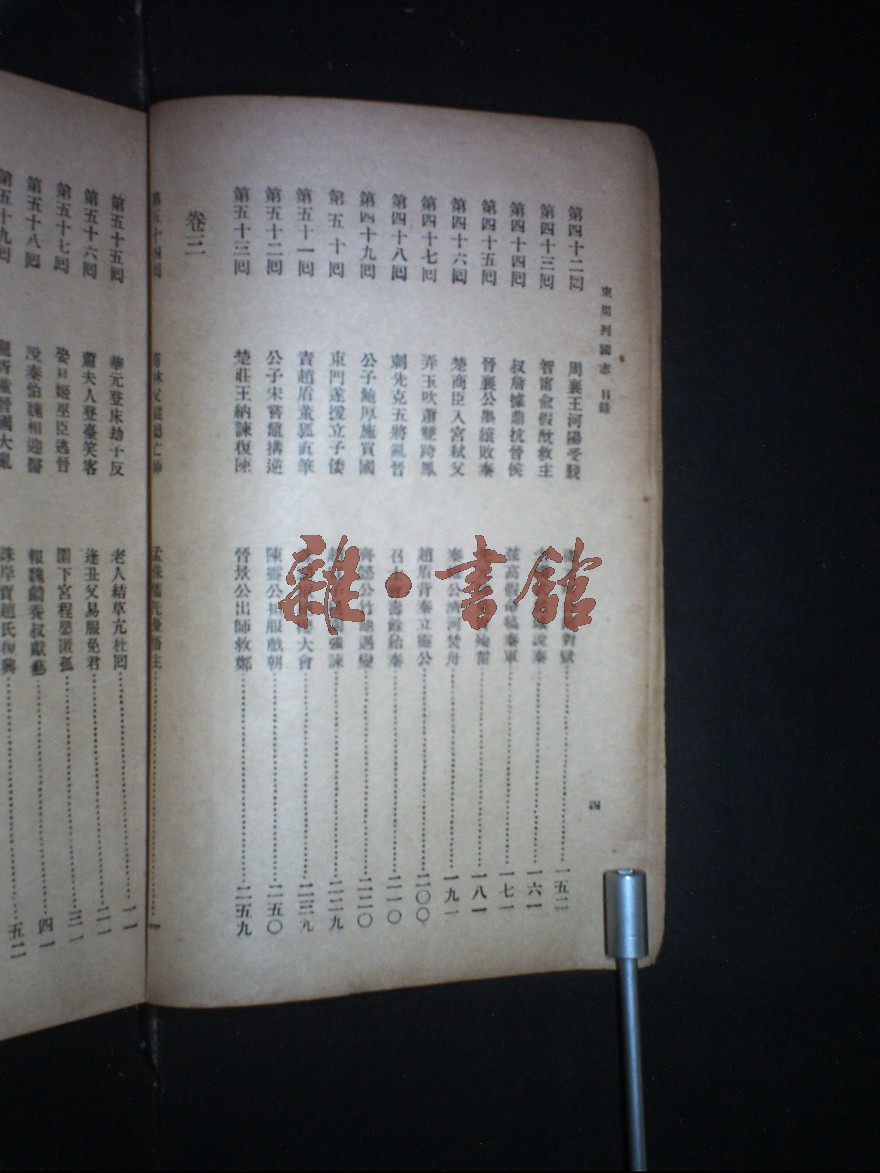 東周列國志 目錄
四
第四十二囘 周襄王河陽受覲 對獄 一五二
第四十三囘 智甯俞假酖救主 說秦 一六一
第四十四囘 叔詹據鼎抗晉侯 弦高假 犒秦軍 一七一
第四十五囘 晉襄公墨縗敗秦 殉翟 一八一
第四十六囘 楚商臣入宮弒父 秦 公濟河焚舟 一九一
第四十七囘 弄玉吹蕭雙跨鳳 趙盾背秦立靈公 二〇〇
第四十八囘 刺先克五將亂晉 召士會壽餘紿秦 二一〇
第四十九囘 公子鮑厚施買國 齊懿公竹 遇變 二二〇
第五十囘 東門遂援立子倭 強諫 二二九
第五十一囘 責趙盾董狐直筆 大會 二三九
第五十二囘 公子宋嘗黿搆逆 陳靈公 服戲朝 二五〇
第五十三囘 楚莊王納諫復陳 晉景公出師救鄭 二五九
卷三
第五十四囘 林父 亡師 孟侏儒託 悟主 一
第五十五囘 華元登床劫子反 老人結草亢杜囘 一一
第五十六囘 蕭夫人登臺笑客 逢丑父易服免君 二一
第五十七囘 娶夏姬巫臣逃晉 圍下宮程嬰匿孤 三一
第五十八囘 說秦伯魏相迎醫 報魏錡養叔獻藝 四一
第五十九囘 晉國大亂 誅岸賈趙氏復興 五二
雜·書館